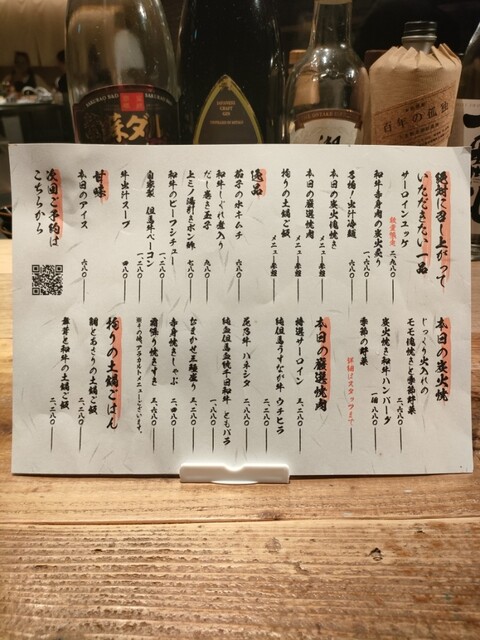 絶対に召し上がって
いただきたい一品
サーロインユッケ 二、六八〇
和牛赤身肉の炭火炙り 数量限定
一、六八〇
名物！出汁冷麺 六八〇
本日の炭火塊焼き メニュー参照
本日の厳選焼肉 メニュー参照
拘りの土鍋ご飯 メニュー参照
逸品
茄子の水キムチ 六八〇
和牛しぐれ煮入り
だし巻き玉子 九八〇
上ミノ湯引きポン酢 七八〇
和牛のビーフシチュー 一、二八〇
自家製 但馬牛ベーコン 一、二八〇
牛出汁スープ 四八〇
甘味
本日のアイス 六八〇
次回ご予約は
こちらから
本日の炭火焼
じっくり火入れの
モモ塊焼きと季節野菜 二、六八〇
炭火焼き和牛ハンバーグ 一個 八八〇
季節の野菜 詳細はスタッフまで
本日の厳選焼肉
特選サーロイン 三、二八〇
純但馬うすなが牛 ウチヒラ 二、二八〇
尾花牛 ハネシタ 二、二八〇
純血但馬血統千日和牛 ともバラ 一、八八〇
おまかせ三種盛り 三、二八〇
赤身焼きしゃぶ 二、四八〇
霜降り焼きすき 三、六八〇
拘りの土鍋ごはん
鯛とあさりの土鍋ご飯 二、二八〇
舞茸と和牛の土鍋ご飯 二、二八〇
百年の孤独